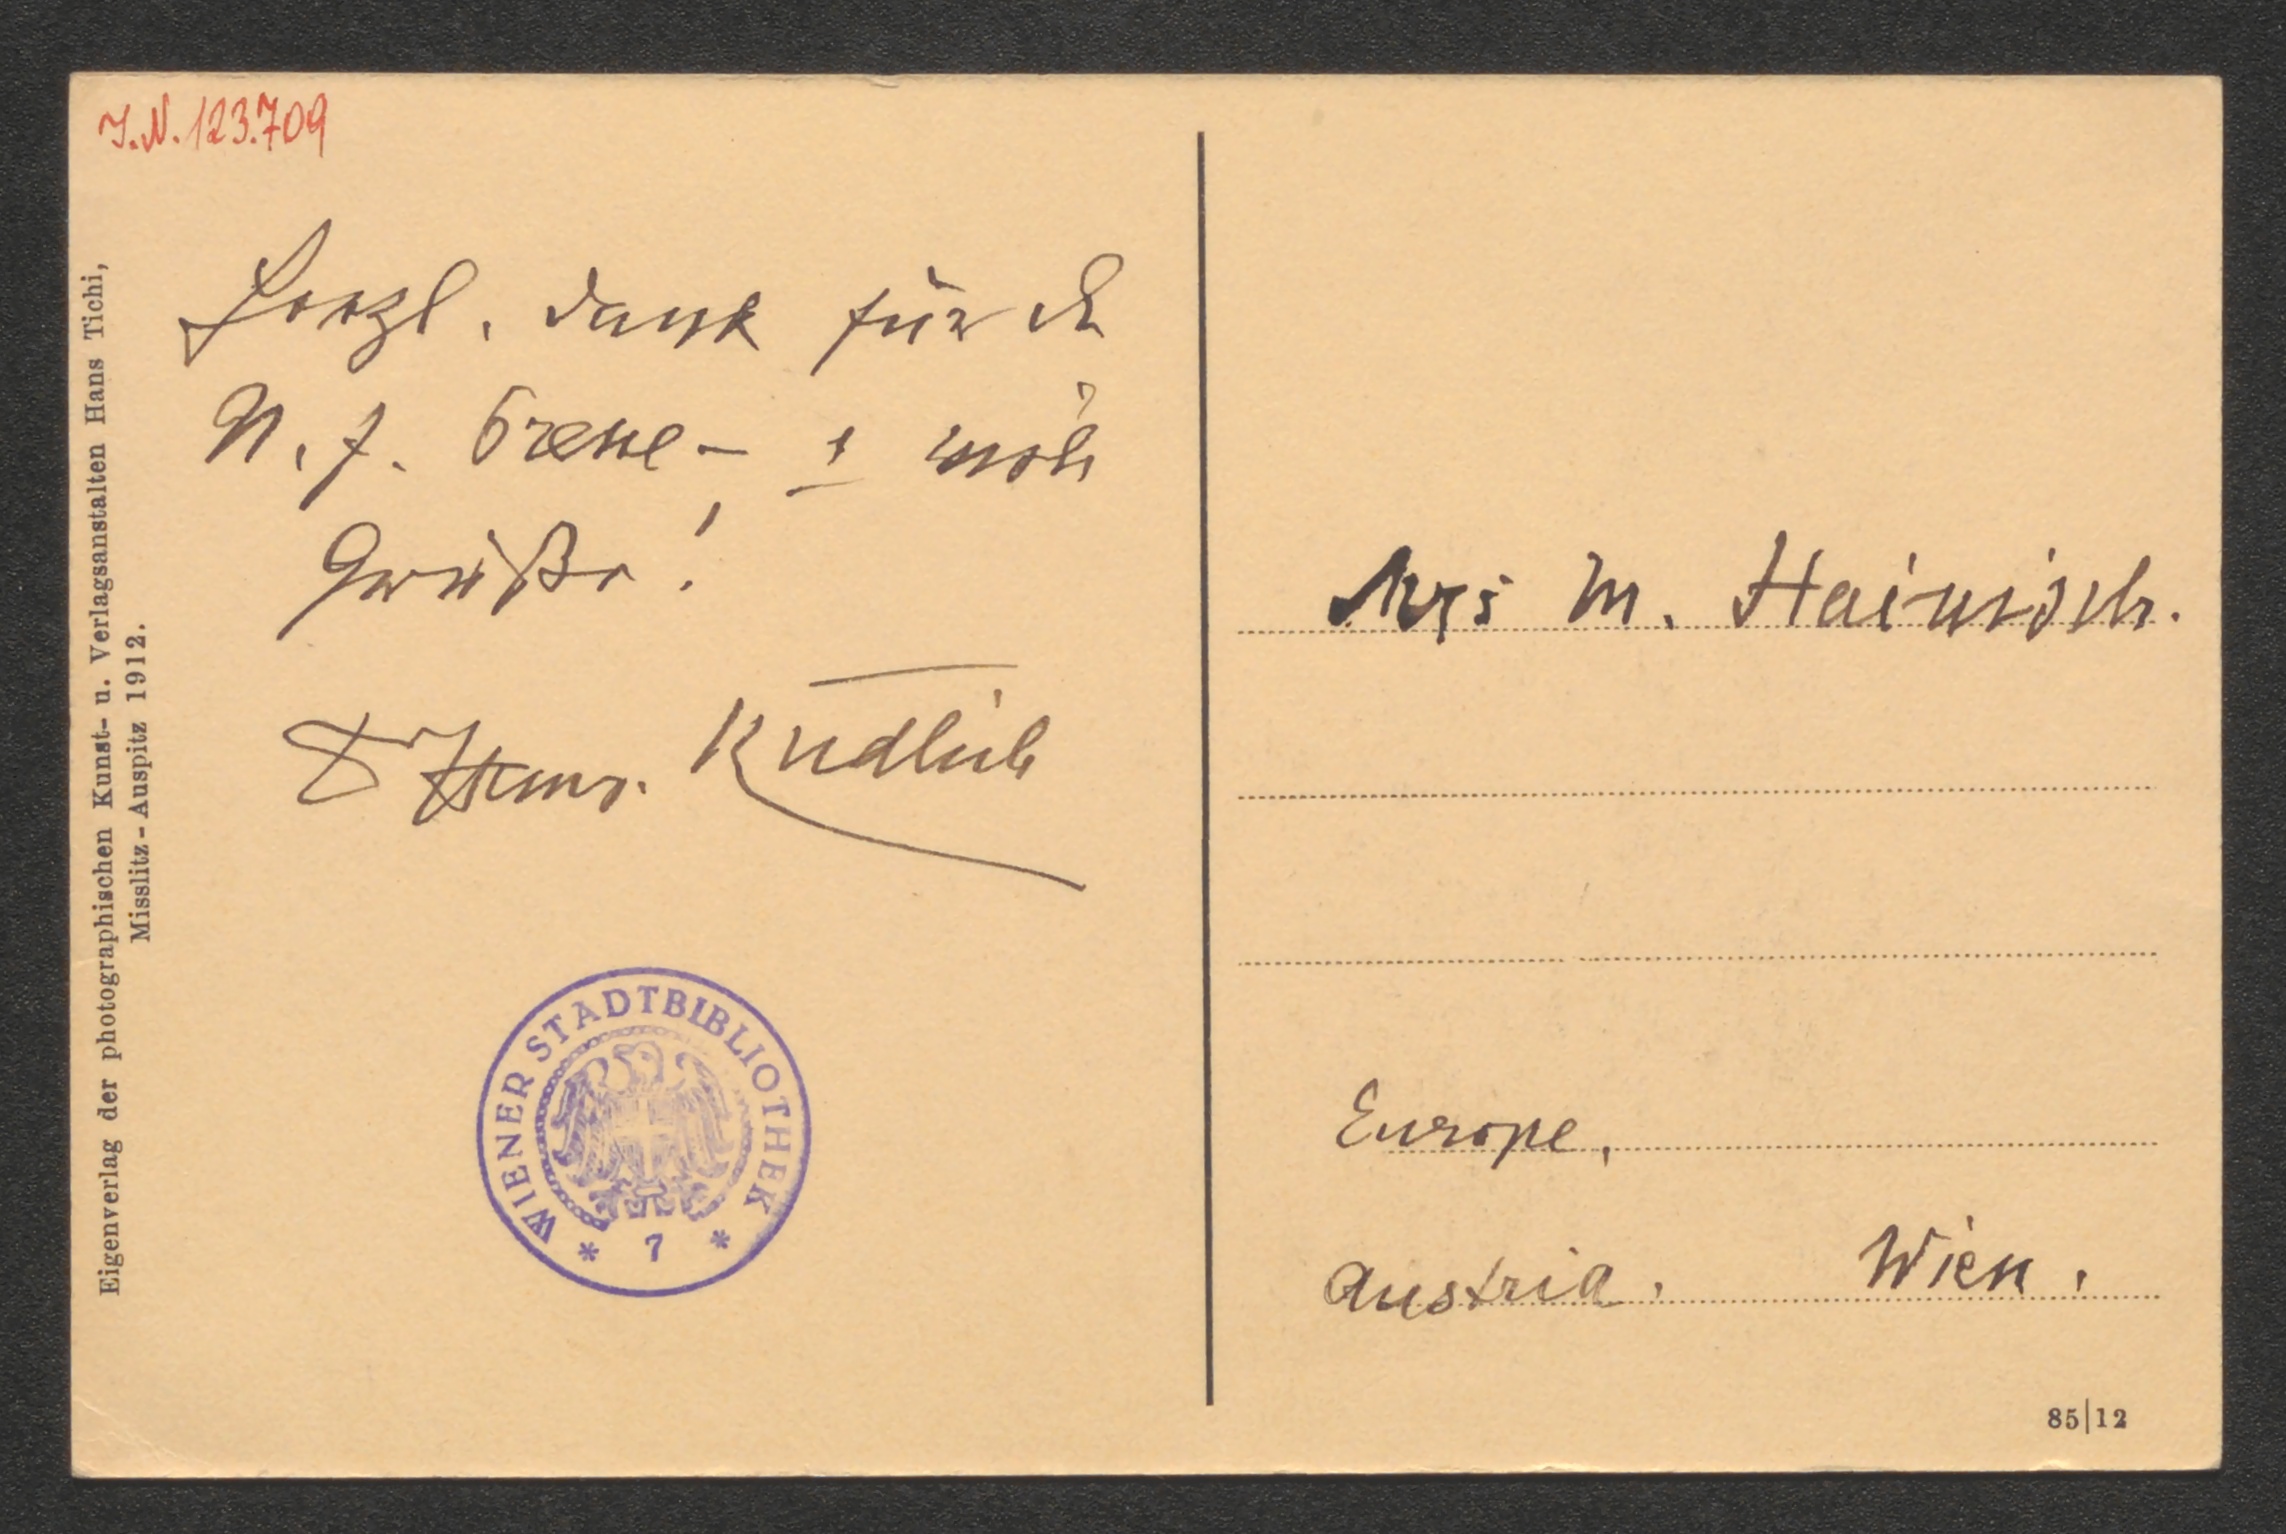 J.N. 123.709
Herzl. Dank für die
N. f. Presse –
Grüße!
Dr Hans Kudlich
Eigenverlag der photographischen Kunst- u. Verlagsanstalten Hans Tichi,
Misslitz - Auspitz 1912.
WIENER STADTBIBLIOTHEK
* 7 *
Mrs M. Hainisch.
Europe,
Austria. Wien.
85|12